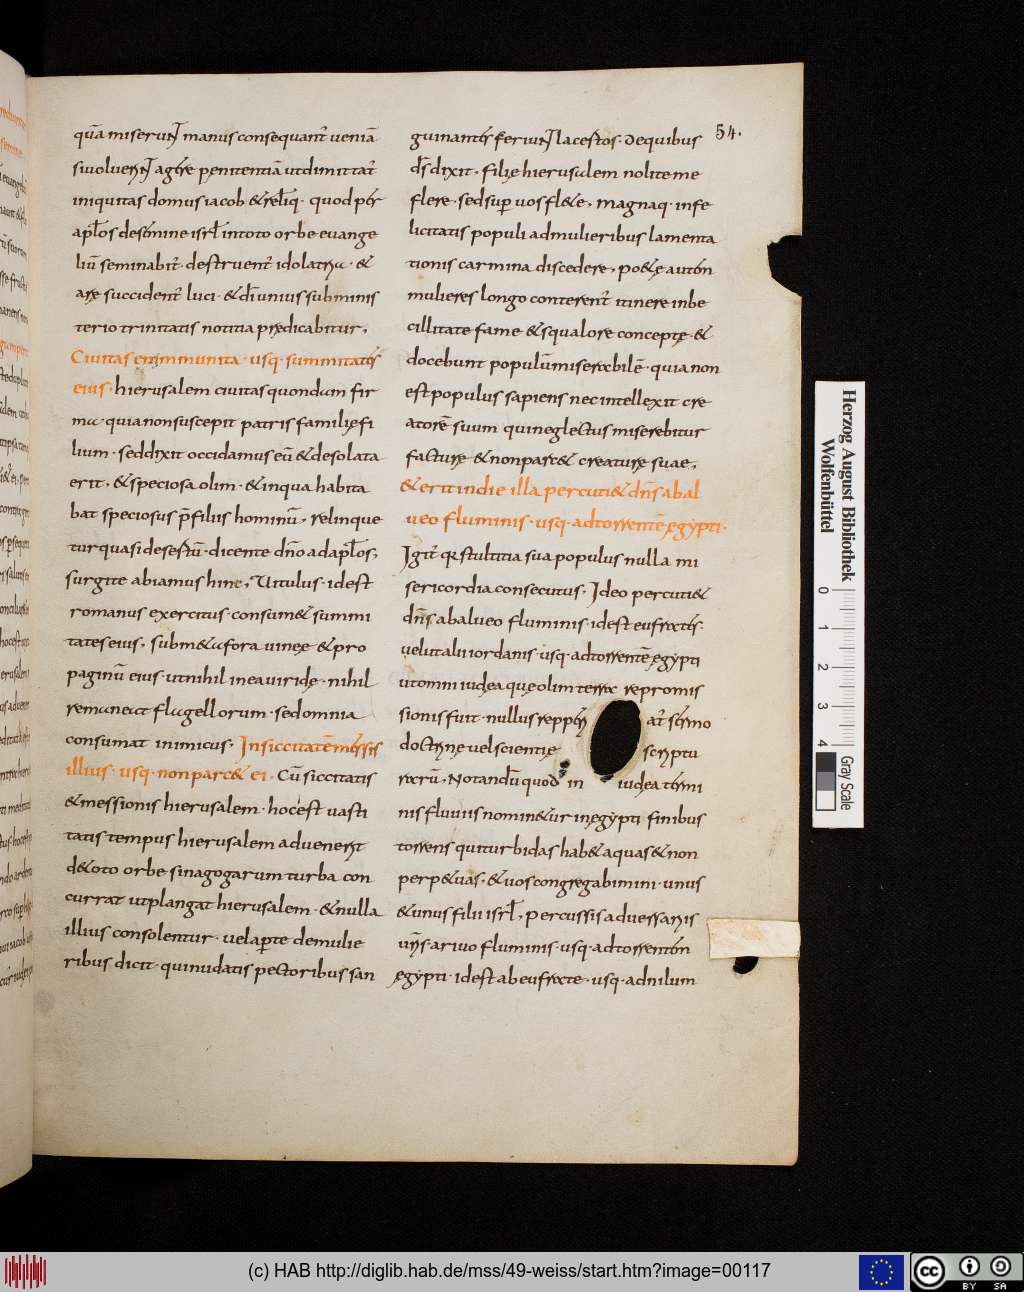 54.
quā miserunt manus consequant᷑ veniā
si voluerint agere penitentiā ut dimittat᷑
iniquitas domus iacob & reliq· quod per
apl̄os de semine isrl̄ in toto orbe evange
liū seminabit᷑· destruent᷑ idolatria· &
aræ succident᷑ luci· & dī unius sub minis
terio trinitatis notitia prędicabitur,
Civitas enim munita· usq· summitates
eius· hierusalem civitas quondam fir
ma· quia non suscepit patris familię fi
lium· sed dixit occidamus eū & desolata
erit, & speciosa olim· & in qua habita
bat speciosus p̄ filiis hominū, relinque
tur quasi desertū· dicente dn̄o ad apl̄os,
surgite abiamus hinc, Vitulus· id est
romanus exercitus· consum& summi
tates eius, subm&a fora vineę & pro
paginū eius· ut nihil in ea viridę· nihil
remaneat flagellorum· sed omnia
consumat inimicus· In siccitatē messis
illius· usq· non parc& ei· Cū siccitatis
& messionis hierusalem· hoc est vasti
tatis tempus hierusalem advenerit
d& oto orbe sinagogarum turba con
currat ut plangat hierusalem· & nulla
illius consolentur· vel aperte de mulie
ribus dicit· qui nudatis pectoribus san
guinantes feriunt lacertos· de quibus
dn̄s dixit· filię hierusalem nolite me
flere· sed sup̄ vos fl&e, magnaq· infe
licitatis populi ad mulieribus lamenta
tionis carmina discedere, po&ę autem
mulieres longo conterent᷑ itinere inbe
cillitate fame & squalore conceptę· &
docebunt populū miserabilē· quia non
est populus sapiens nec intellexit cre
atorē suum qui neglectus miserebitur
facturę & non parc& creaturę suae,
& erit in die illa percuti& dn̄s ab al
veo fluminis· usq· ad torrentē ęgypti·
Igit᷑ q̄ stultitia sua populus nulla mi
sericordia consecutus· Ideo percuti&
dn̄s ab alveo fluminis· id est eufrates·
vel ut alii iordanis· usq· ad torrentē ęgypti
ut omni iudea quę olim terrae repromis
sionis fuit· nullus repper at᷑ sermo
doctrinę vel scientię scriptu
rarū, Notandū quod in iudea termi
nis fluviis nomin&ur in ęgypti finibus
torrens qui turbidas hab& aquas & non
perp&uas· & vos congregabimini· unus
& unus filii isrl̄, percussis adversariis
viris· a rivo fluminis· usq· ad torrentem
ęgypti· id est ab eufrate· usq· ad nilum
Herzog August Bibliothek
Wolfenbüttel
0 1 2 3 4
Gray Scale
(c) HAB http://diglib.hab.de/mss/49-weiss/start.htm?image=00117
cc BY SA